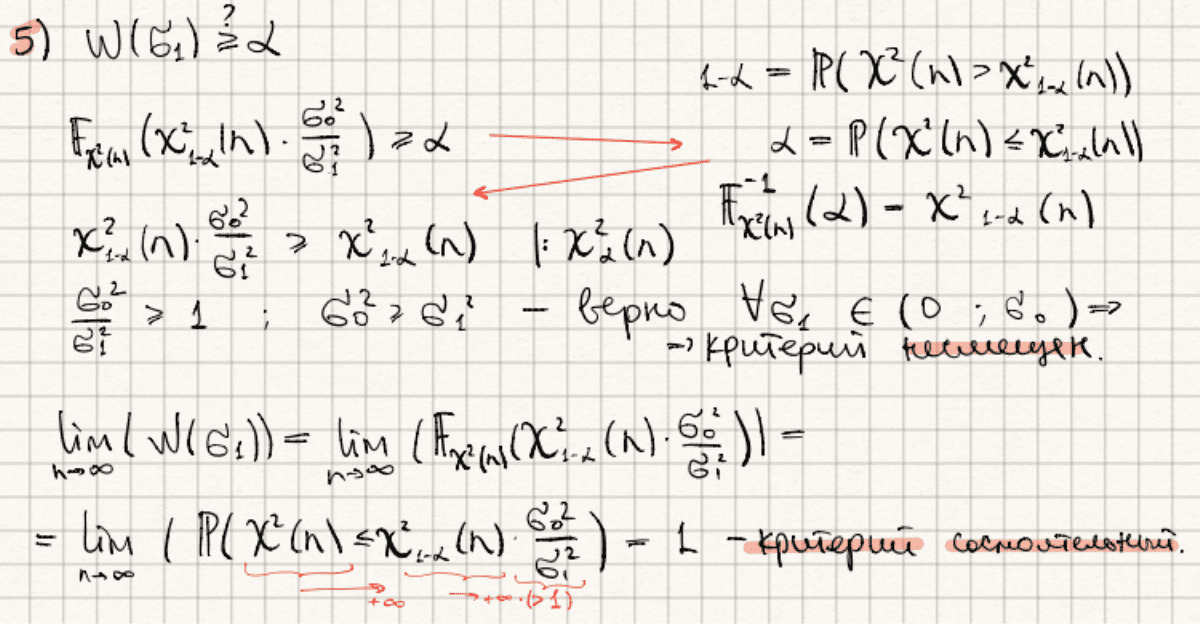 5) W(σ₁) ≥? α
1-α = ℙ(χ²(n) > χ²₁₋α(n))
𝔽_χ²(n) (χ²₁₋α(n) · σ₀²/σ₁²) ≥ α
α = ℙ(χ²(n) ≤ χ²₁₋α(n))
𝔽⁻¹_χ²(n) (α) = χ²₁₋α (n)
χ²₁₋α(n) · σ₀²/σ₁² ≥ χ²₁₋α(n) |: χ²_α(n)
σ₀²/σ₁² ≥ 1 ; σ₀² ≥ σ₁² – верно ∀σ₁ ∈ (0 ; σ₀) ⇒
⇒ критерий несмещен.
lim_{n→∞} (W(σ₁)) = lim_{n→∞} (𝔽_χ²(n)(χ²₁₋α(n) · σ₀²/σ₁²)) =
= lim_{n→∞} (ℙ(χ²(n) ≤ χ²₁₋α(n) · σ₀²/σ₁²) = 1 – критерий состоятельный.
→ +∞ → +∞ · (>1)